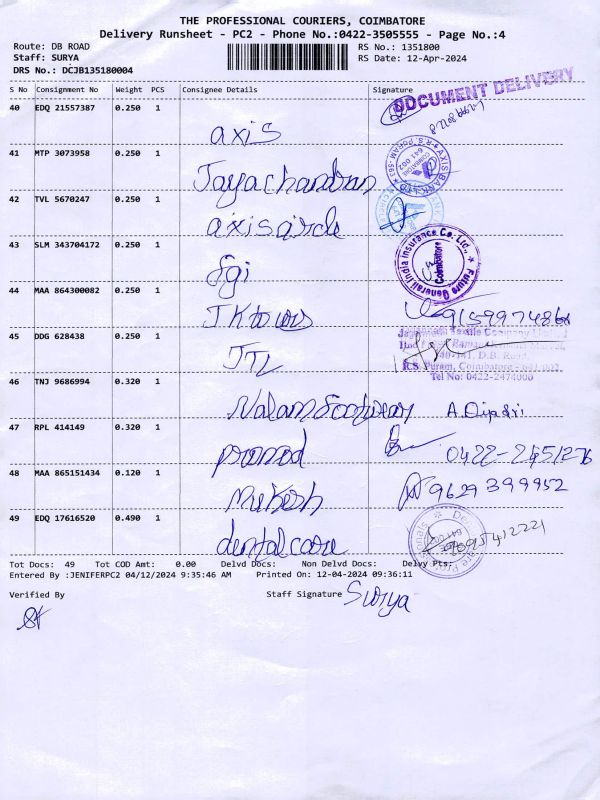 THE PROFESSIONAL COURIERS, COIMBATORE
Delivery Runsheet - PC2 - Phone No.:0422-3505555 - Page No.:4
Route: DB ROAD
RS No.: 1351800
Staff: SURYA
RS Date: 12-Apr-2024
DRS No.: DCJB135180004
S No Consignment No Weight PCS Consignee Details Signature
DOCUMENT DELIVERY
40 EDQ 21557387 0.250 1
axis
41 MTP 3073958 0.250 1
Jayachandran
42 TVL 5670247 0.250 1
axis circle
43 SLM 343704172 0.250 1
Fgi
Future Generali India Insurance Co. Ltd.,
Coimbatore
44 MAA 864300082 0.250 1
JK towers
45 DDG 628438 0.250 1
JTL
R.S. Puram, Coimbatore - 641 002
Tel No: 0422-2474000
46 TNJ 9686994 0.320 1
Nalam footwear A. Dip
47 RPL 414149 0.320 1
pramod
48 MAA 865151434 0.120 1
Mukesh 9629399952
49 EDQ 17616520 0.490 1
dental care
Tot Docs: 49 Tot COD Amt: 0.00 Delvd Docs: Non Delvd Docs: Delvy Pts:
Entered By :JENIFERPC2 04/12/2024 9:35:46 AM Printed On: 12-04-2024 09:36:11
Verified By
Staff Signature Surya